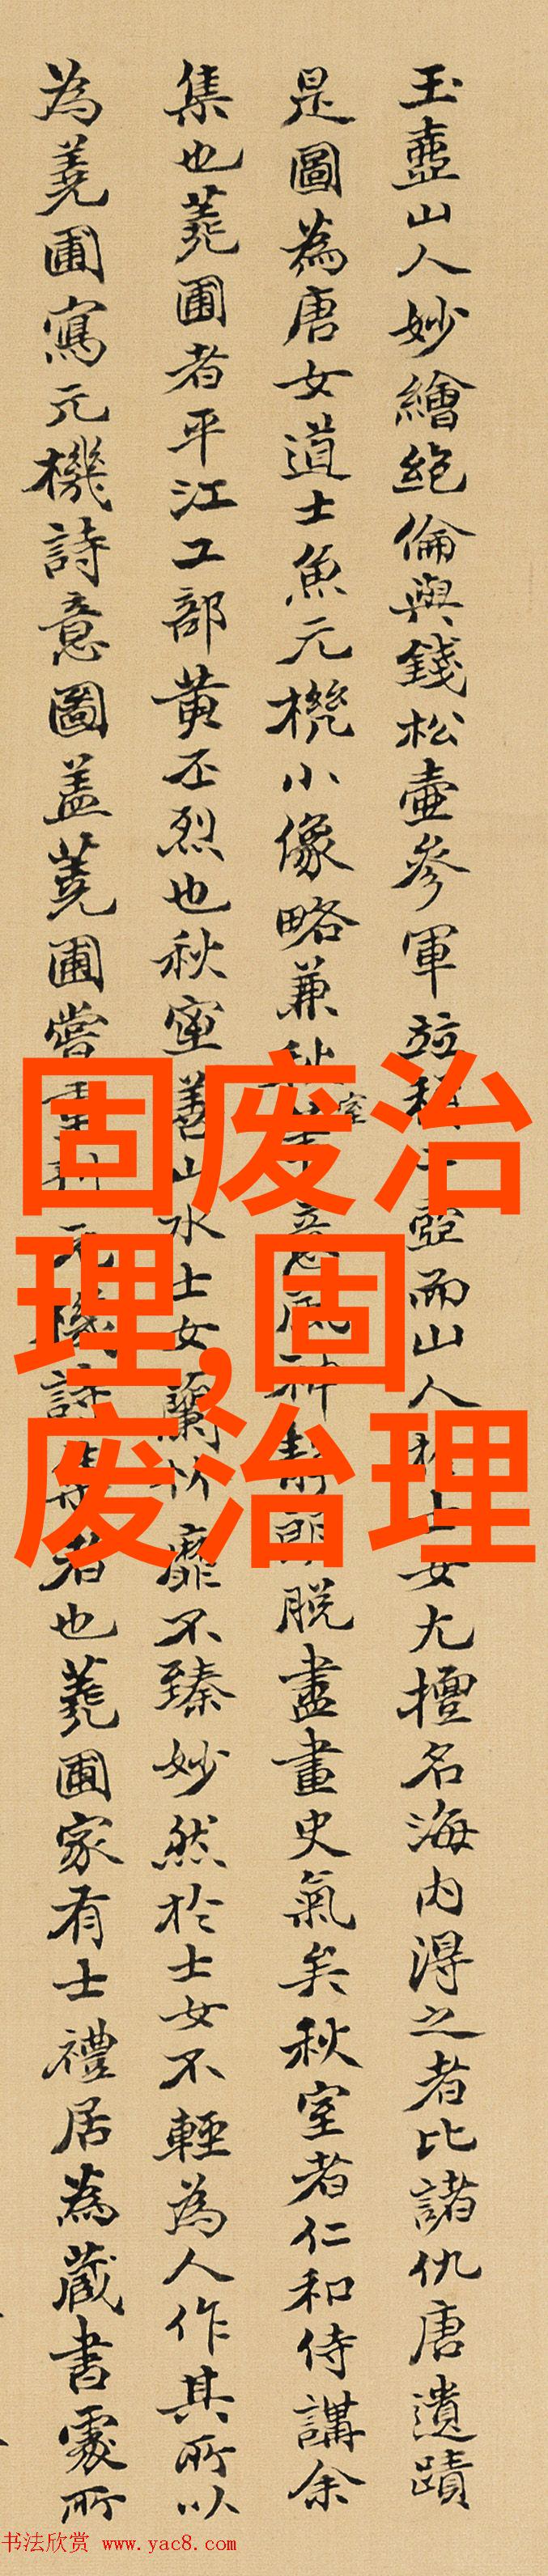 玉壺山人妙繪絶倫與錢松壷參軍並稱二壺而山人於士女尤擅名海内得之者比諸仇唐遺蹟
是圖為唐女道士魚元機小像略兼秋室意風神静朗脱盡畫史氣矣秋室者仁和侍講余
集也蕘圃者平江工部黄丕烈也秋室善山水士女蘭竹靡不臻妙然於士女不輕為人作其所以
為蕘圃寫元機詩意圖盖蕘圃嘗元機詩集者也蕘圃家有士禮居為藏書處所
固废治
理,固
废治理
书法欣赏 www.yac8.com